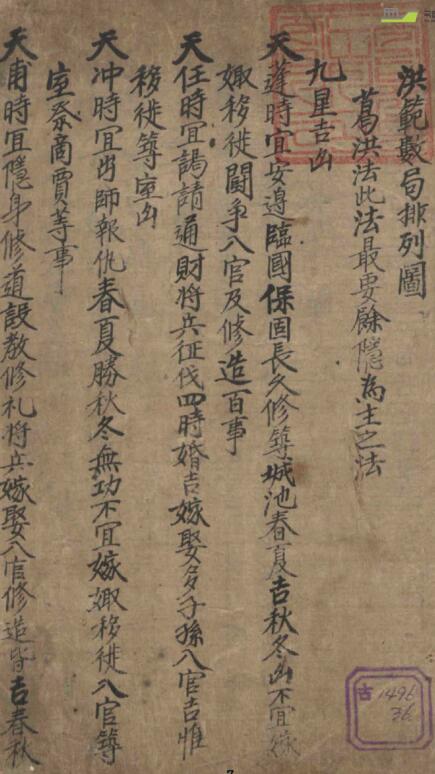 洪範數局排列圖
葛洪法此法最要餘隱為主之法
九星吉凶
天蓬時宜安邉臨國保固長久修筭城池春夏吉秋冬凶不宜嫁
娵移徙鬪争入官及修造百事
天任時宜謁請通財將兵征伐四時婚吉嫁娶多子孫入官吉惟
移徙筭室凶
天冲時宜出師報仇春夏勝秋冬無功不宜嫁娵移徙入官筭
室祭商賈等事
天甫時宜隱身修道設教修礼將兵嫁娶入官修造皆吉春秋
古1496
36